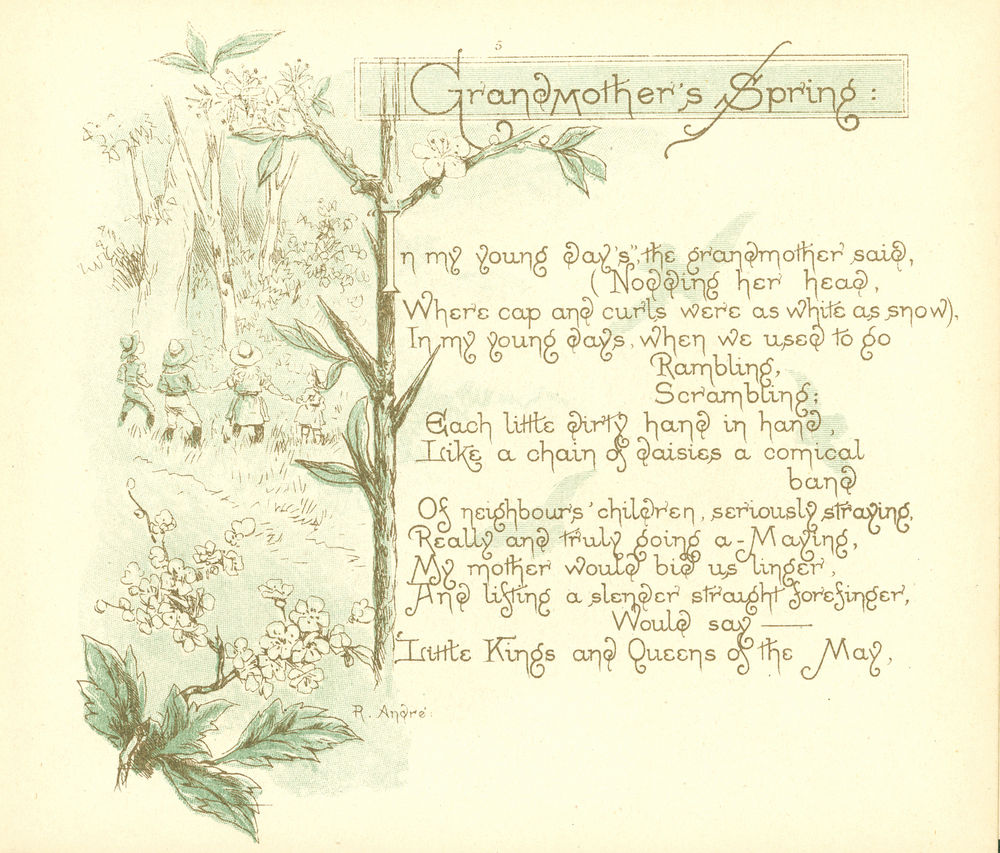 5
Grandmother's Spring:
In my young day's", the grandmother said,
(Nodding her head,
Where cap and curls were as white as snow),
In my young days, when we used to go
Rambling,
Scrambling;
Each little dirty hand in hand,
Like a chain of daisies a comical
band
Of neighbours' children, seriously straying,
Really and truly going a-Maying,
My mother would bid us linger,
And lifting a slender straight forefinger,
Would say —
Little Kings and Queens of the May,
R. André.